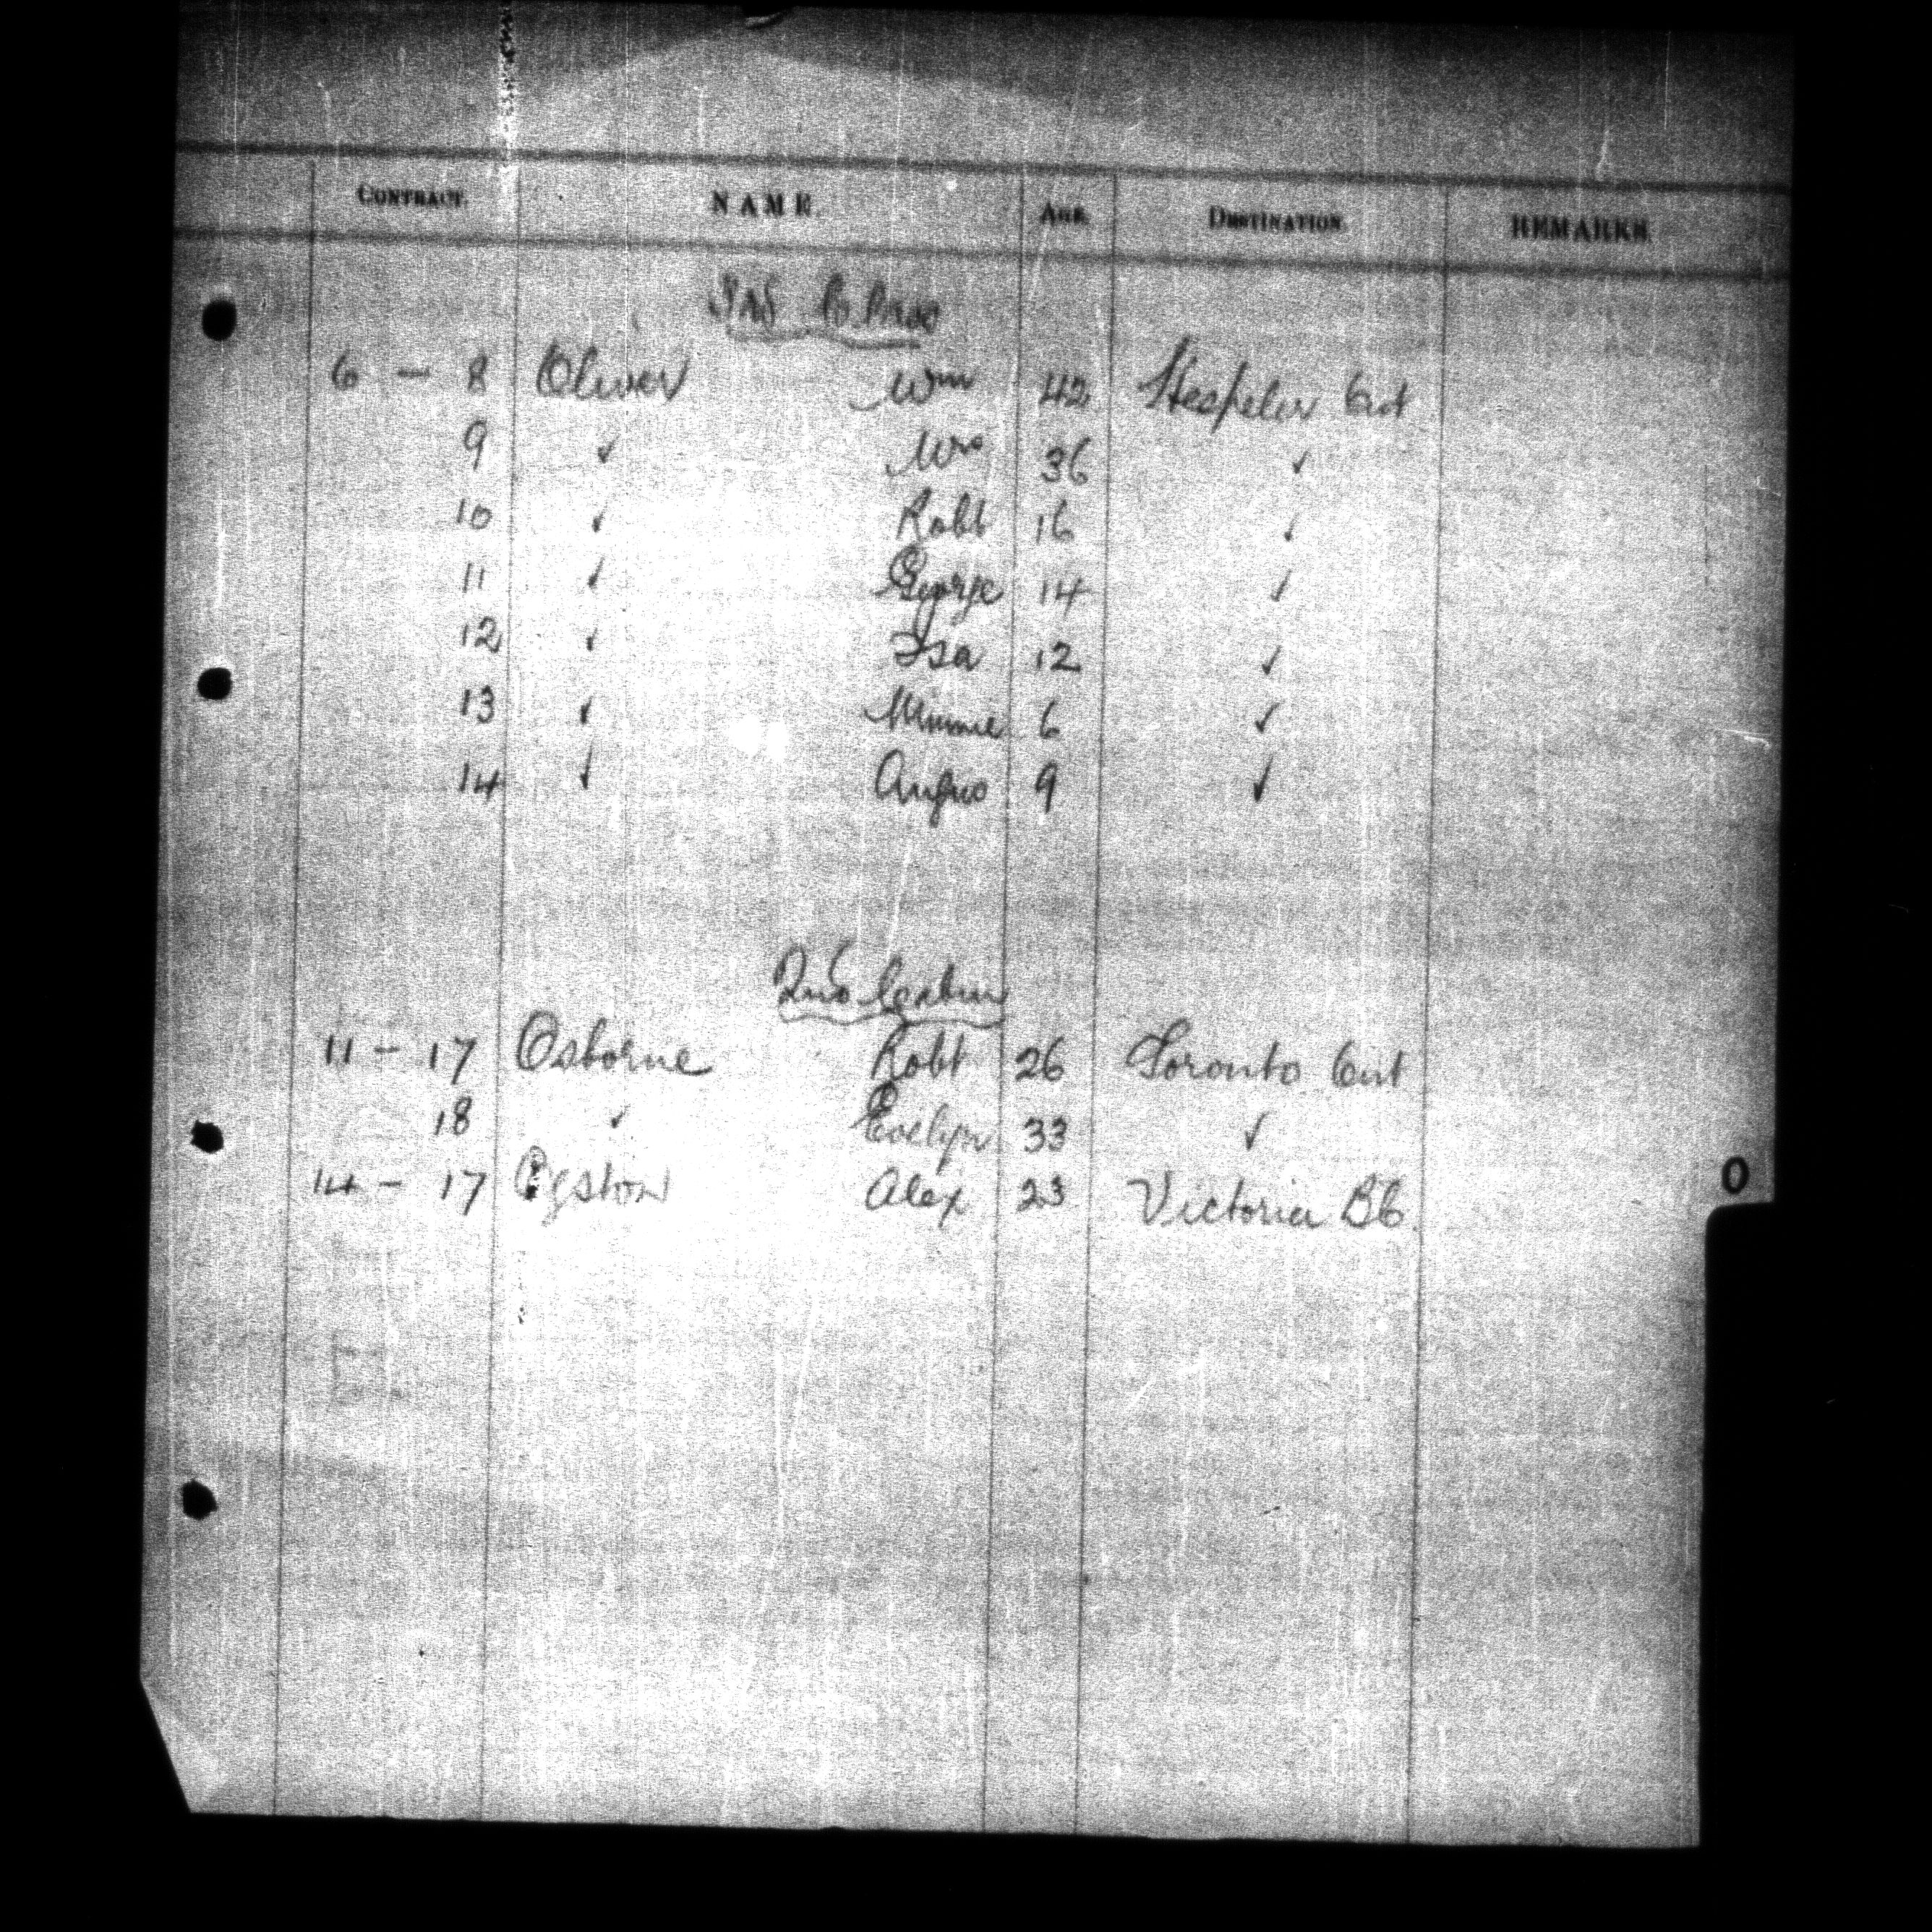 CONTRACT. NAME. AGE. DESTINATION. REMARKS.
3rd Class
6 - 8 Oliver Wm 42 Hespeler Ont
9 ✓ Mrs 36 ✓
10 ✓ Robt 16 ✓
11 ✓ George 14 ✓
12 ✓ Isa 12 ✓
13 ✓ Minnie 6 ✓
14 ✓ Angus 9 ✓
2nd Cabin
11 - 17 Osborne Robt 26 Toronto Ont
18 ✓ Evelyn 33 ✓
14 - 17 Ogston Alex 23 Victoria BC.
O